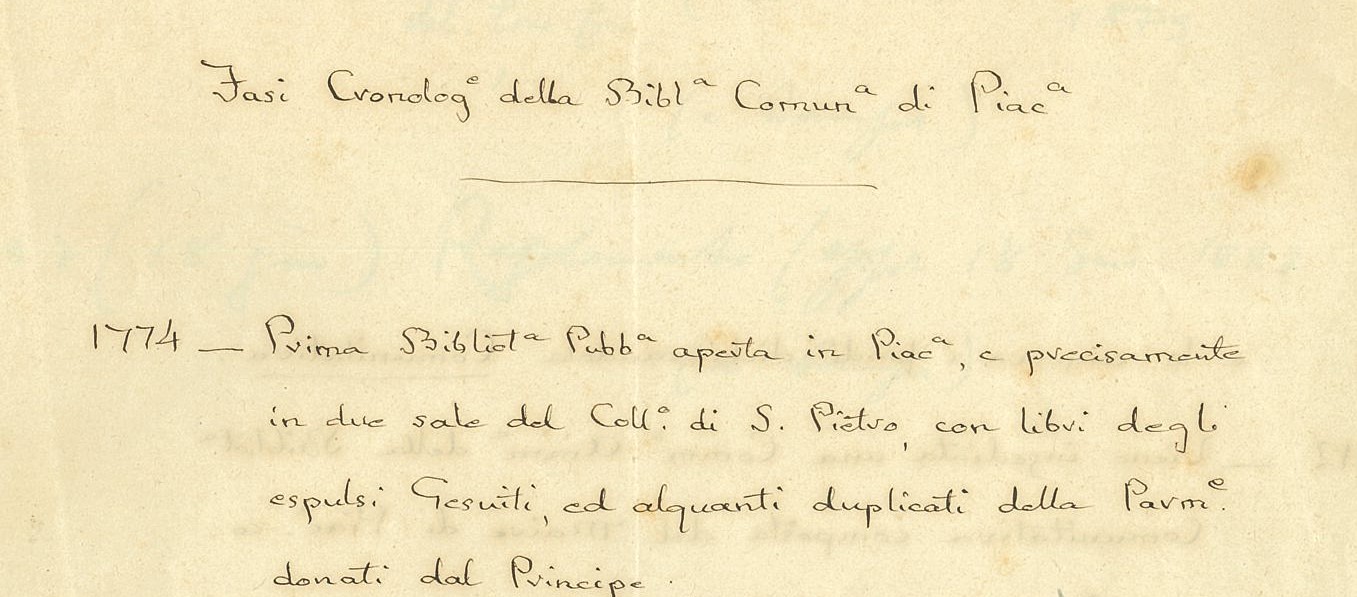 Fasi Cronolog.ᵉ della Bibl.ᵃ Comun.ᵃ di Piac.ᵃ
1774 — Prima Bibliot.ᵃ Pubb.ᵃ aperta in Piac.ᵃ, e precisamente
in due sale del Coll.º di S. Pietro, con libri degli
espulsi Gesuiti, ed alquanti duplicati della Parm.ᵉ
donati dal Principe.